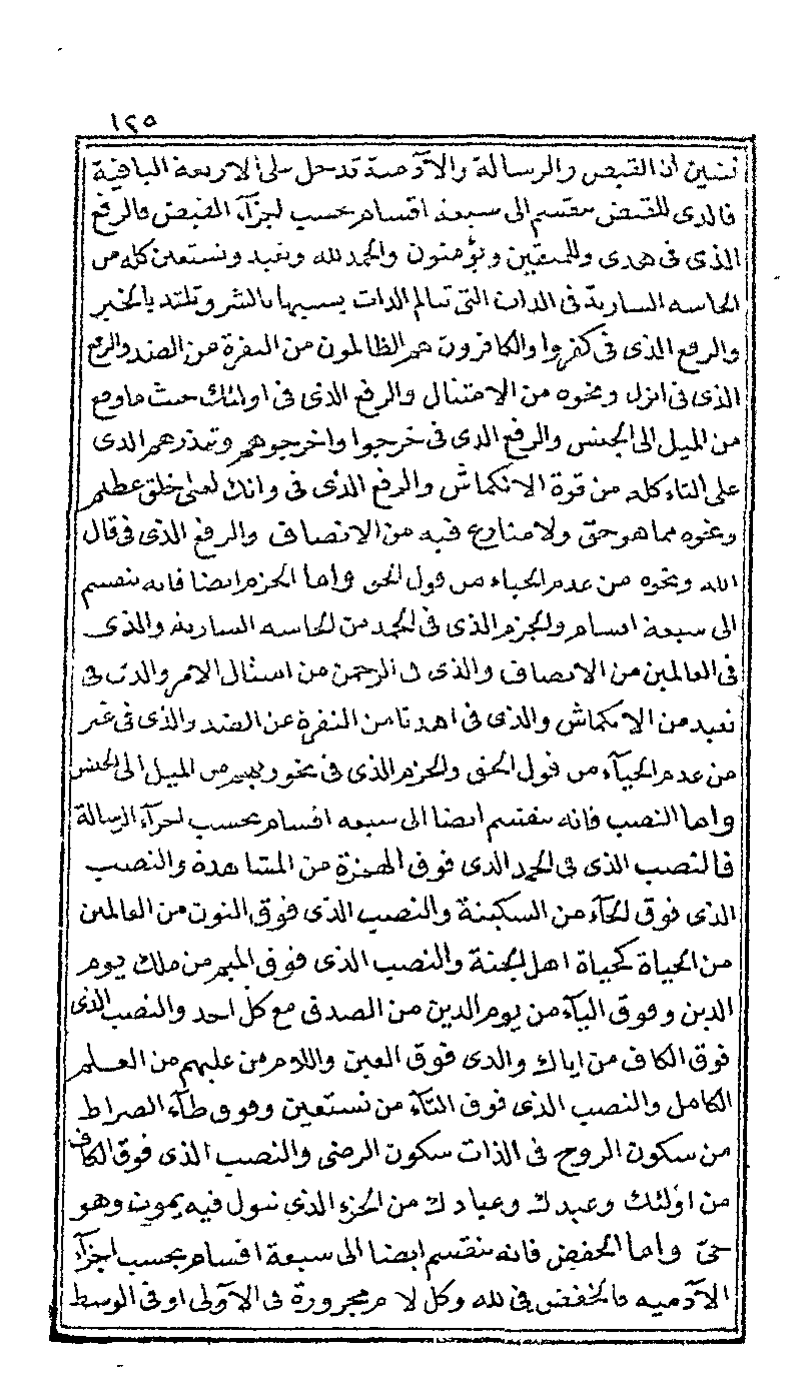 ١٢٥
تبين ان القبض والرسالة والآدمية تدخل على الاربعة الباقية
فالذى للقبض ينقسم الى سبعة اقسام بحسب اجزآء القبض فالرفع
الذى فى هدى وللمتقين ويؤمنون والحمد لله ونعبد ونستعين كله من
الحاسه السارية فى الذات التى تتألم الذات بسببها بالشر وتلتذ بالخير
والرفع الذى فى كفروا والكافرون هم الظالمون من النفرة عن الضد والرفع
الذى فى انزل ونحوه من الامتثال والرفع الذى فى اولئك حيث ما وقع
من الميل الى الجنس والرفع الذى فى خرجوا واخرجوهم وتنذرهم الذى
على التاء كله من قوة الانكماش والرفع الذى فى وانك لعلى خلق عظيم
ونحوه مما هو حق ولا منازع فيه من الانصاف والرفع الذى فى قال
الله ونحوه من عدم الحياء من قول الحق واما الجزم ايضا فانه ينقسم
الى سبعة اقسام والجزم الذى فى الحمد من الحاسه السارية والذى
فى العالمين من الانصاف والذى فى الرحمن من امتثال الامر والذى فى
نعبد من الانكماش والذى فى اهدنا من النفرة عن الضد والذى فى غير
من عدم الحيآء من قول الحق والجزم الذى فى نحو من الميل الى الجنس
واما النصب فانه ينقسم ايضا الى سبعه اقسام بحسب اجزآء الرسالة
فالنصب الذى فى الحمد الذى فوق الهمزة من المشاهدة والنصب
الذى فوق الحآء من السكينة والنصب الذى فوق النون من العالمين
من الحياة كحياة اهل الجنة والنصب الذى فوق الميم من ملك يوم
الدين وفوق اليآء من يوم الدين من الصدق مع كل احد والنصب الذى
فوق الكاف من اياك والذى فوق العين واللام من عليهم من العلم
الكامل والنصب الذى فوق التآء من نستعين وفوق طآء الصراط
من سكون الروح فى الذات سكون الرضى والنصب الذى فوق الكاف
من اولئك وعبدك وعبادك من الجزء الذى نقول فيه يموت وهو
حىّ واما الخفض فانه ينقسم ايضا الى سبعة اقسام بحسب اجزآء
الآدميه فالخفض فى لله وكل لام مجرورة فى الآولى او فى الوسط